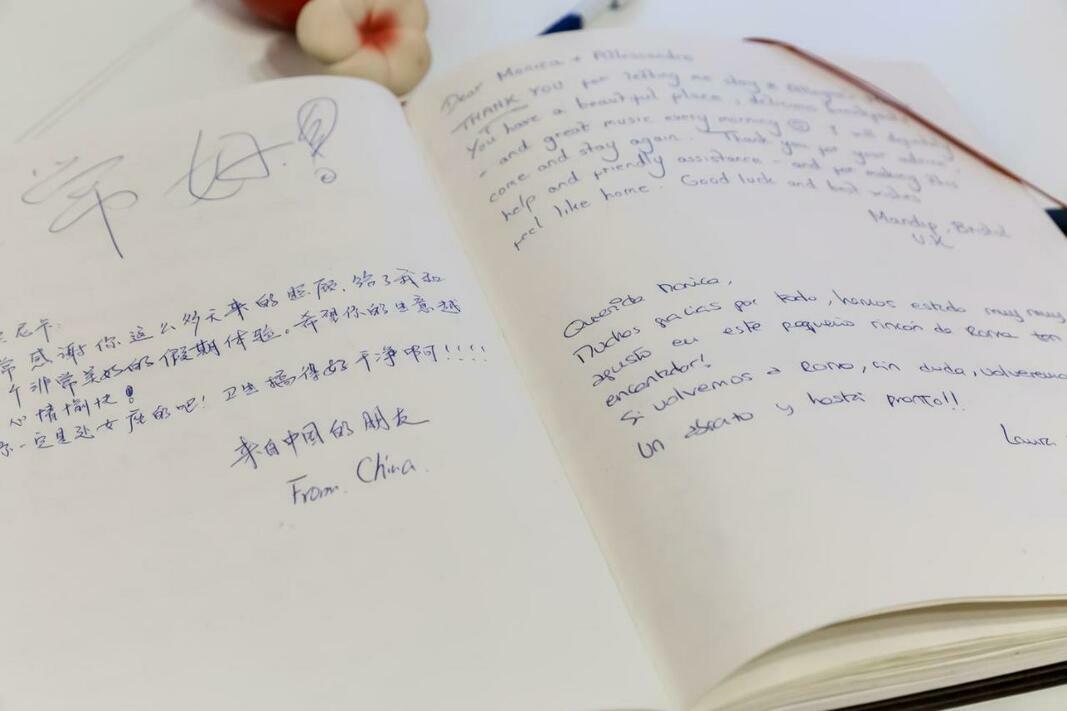 好!
尼卡:
常感谢你这么多天来的照顾.给了我和
个非常美好的假期体验。希望你的生意越
心情愉快!
一定是处女座的吧! 卫生搞得好干净啊!!!!
来自中国的朋友
From. China.
Dear Monica + Allessandro
THANK YOU for letting me stay
You have a beautiful place, delicious
- and great music every morning ☺ I will
come and stay again. Thank you for your advice,
help and friendly assistance - and for making this
feel like home. Good luck and best wishes
Mandip, Bristol
U.K
Querida Monica,
Muchas gracias por todo, hemos estado muy muy
agusto en este pequeño rincón de Roma tan
encantador!
Si volvemos a Roma, sin duda, volveremos
Un abrazo y hasta pronto!!
Laura